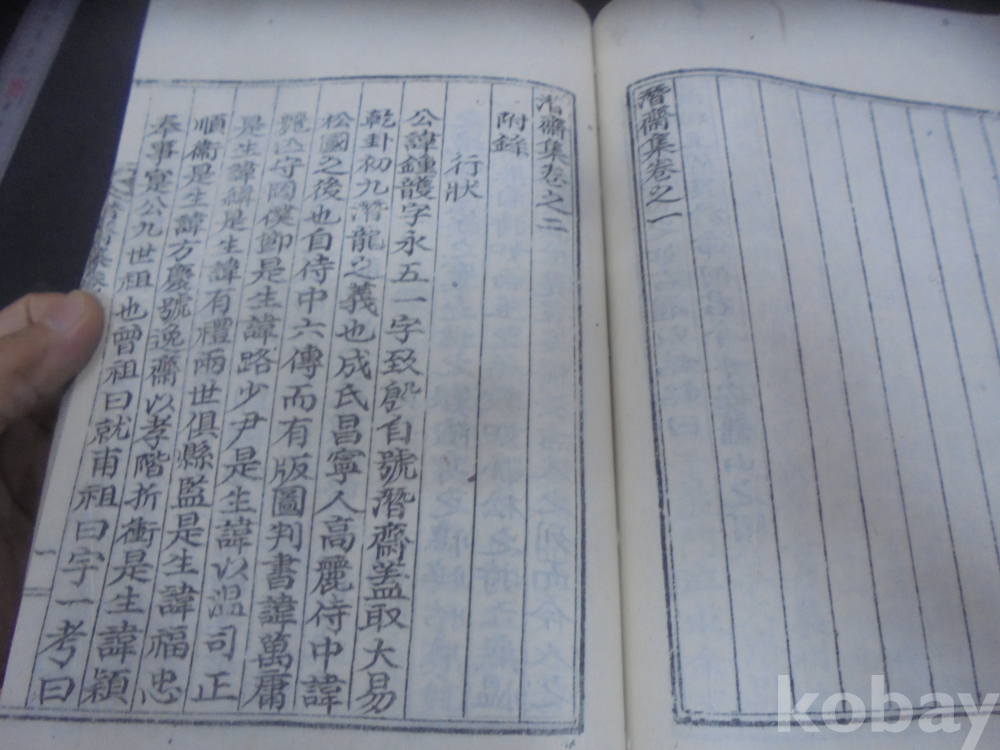 潛齋集卷之一
潛齋集卷之二
附錄
行狀
公諱鍾護字永五一字致慇自號潛齋盖取大易
乾卦初九潛龍之義也成氏昌寧人高麗侍中諱
松國之後也自侍中六傳而有版圖判書諱萬庸
麗亡守罔僕節是生諱路少尹是生諱以温司正
是生諱緝是生諱有禮兩世俱縣監是生諱福忠
順衛是生諱方慶號逸齋以孝階折衝是生諱穎
奉事寔公九世祖也曾祖曰就甫祖曰字一考曰
一
kobay